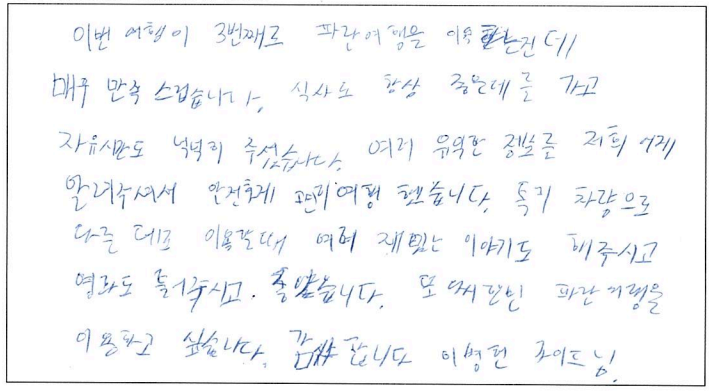 이번 여행이 3번째로 파란여행을 이용 하는건 데
매우 만족 스럽습니다. 식사도 항상 좋은데를 가고
자유시간도 넉넉히 주셨습니다. 여러 유익한 정보를 저희 에게
알려주셔서 안전하게 편히 여행 했습니다. 특히 차량으로
다른 데로 이용할때 여러 재밌는 이야기도 해주시고
영화도 틀어주시고. 좋았습니다. 또 다시한번 파란 여행을
이용하고 싶습니다. 감사 합니다 이병헌 가이드님.